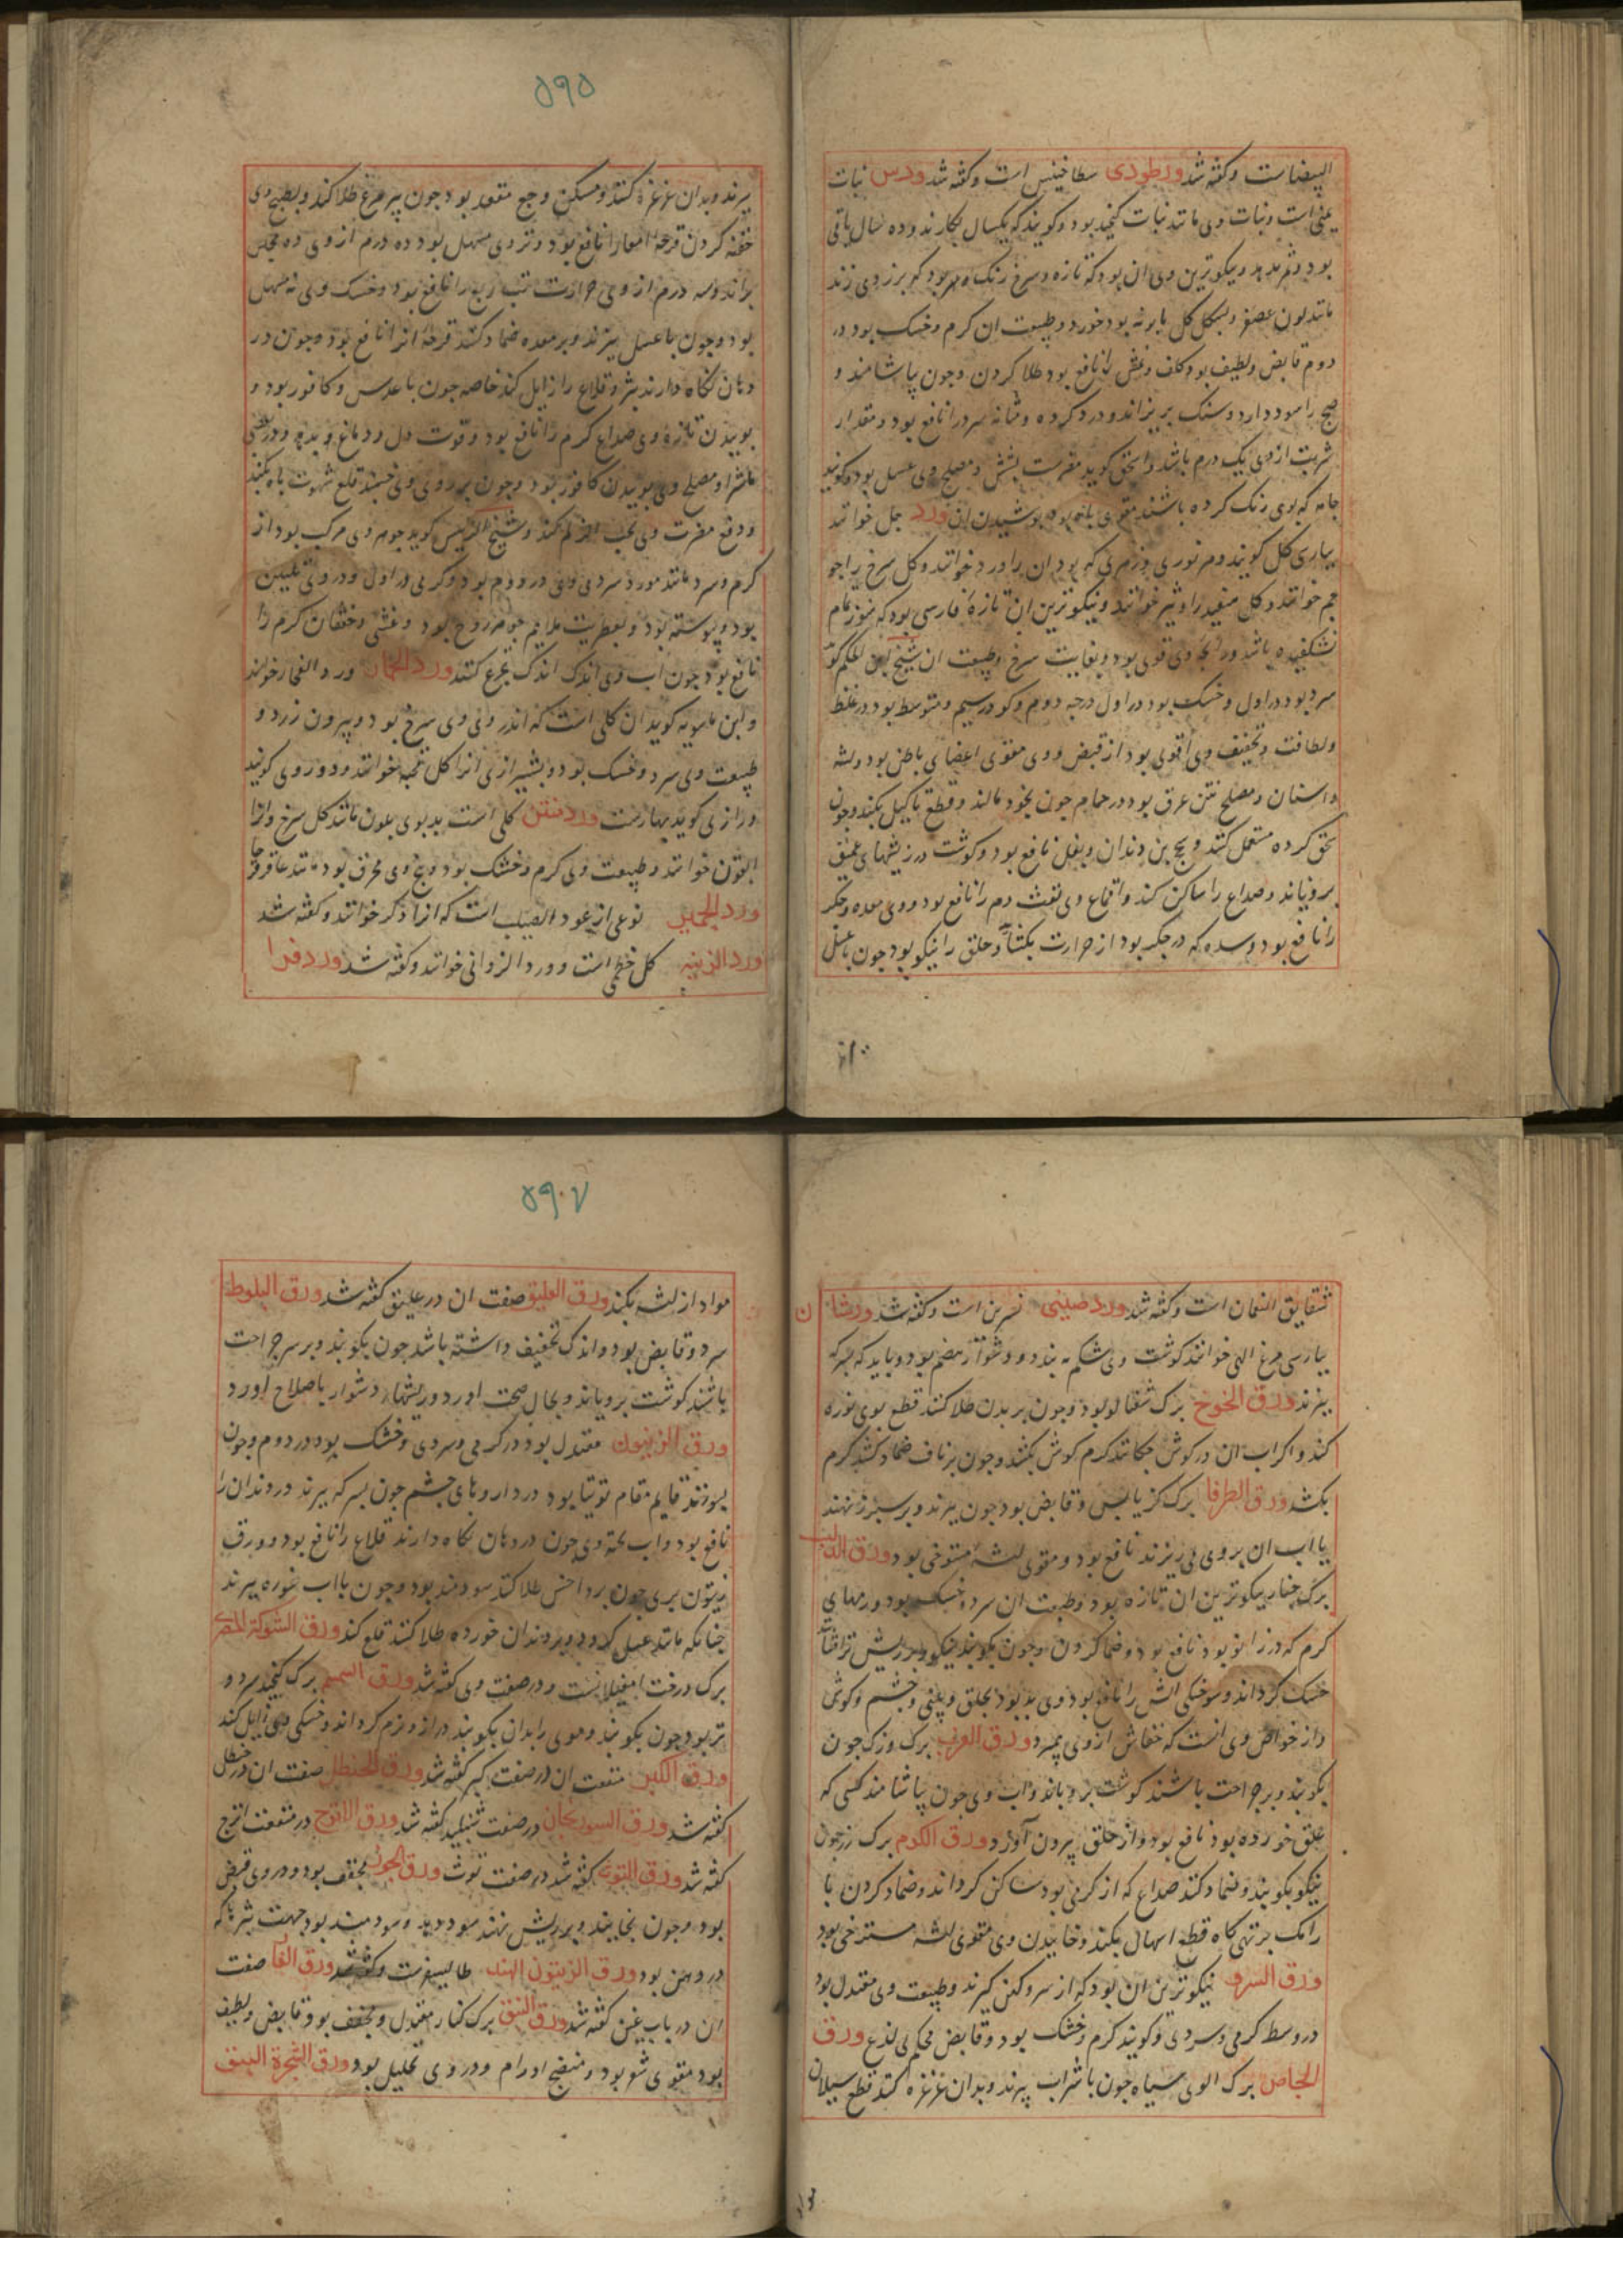 البیضا است و کفته شد ورطوری سطاخینس است و کفته شد ورس نبات
یمنی است و نبات وی مانند نبات کنجد بود و کویند که یکسال بکارند و ده سال باقی
بود و ثمر بدهد و نیکوترین وی ان بود که تازه و سرخ رنک بود که بزردی زند
مانند لون عصفر و بشکل کل بابونه بود خورد و طبیعت ان کرم و خشک بود در
دوم قابض و لطیف بود کلف و نمش را نافع بود طلا کردن و جون بیاشامند و
را سود دارد و سنک بریزاند و درد کرده و مثانه سرد را نافع بود و مقدار
شربت از وی یک درم باشد و اسحق کوید مضرست بشش و مصلح وی عسل بود و کویند
جامه که بوی رنک کرده باشند مقوی باه بود بوشیدن ان ورد جل خوانند
ببارسی کل کویند و هر نوری و زهری که بود ان را ورد خوانند و کل سرخ را جو
جم خوانند و کل سفید را وتیر خوانند و نیکوترین ان تازه فارسی بود که هنوز تمام
نشکفیده باشد و رایحه وی قوی بود و بغایت سرخ و طبیعت ان شیخ ابن الحکم کوید
سرد بود در اول و خشک بود در اول درجه دوم و کو در سیم و متوسط بود در غلظ
و لطافت و تجفیف وی اقوی بود از قبض و وی مقوی اعضای باطن بود و لثه
و اسنان و مصلح نتن عرق بود و در حمام جون بخود مالند و قطع ثالیل بکند و جون
سحق کرده مستعمل کنند و سحج بن دندان و بغل نافع بود و کوشت در ریشهای عمیق
برویاند و صداع را ساکن کند و اقماع وی نفث دم را نافع بود و وی معده و جکر
را نافع بود و سده که در جکر بود از حرارت بکشاید و حلق را نیکو بود جون با عسل
۵۹۵
بپزند و بدان غرغره کنند و مسکن وجع مقعد بود جون بپر مرغ طلا کنند و بطبیخ وی
حقنه کردن قرحه امعا را نافع بود و تر وی مسهل بود ده درم از وی ده مجلس
براند و سه درم از وی حرارت تب ربع را نافع بود و خشک وی نه مسهل
بود و جون با عسل بپزند و بر معده ضماد کنند قرحه انرا نافع بود و جون در
دهان نکاه دارند بثر و قلاع را زایل کند خاصه جون با عدس و کافور بود و
بوییدن تازه وی صداع کرم را نافع بود و قوت دل و دماغ و بدهد و در بعضی
عطسه اورد و مصلح وی بوییدن کافور بود و جون بر روی وی خسبند قطع شهوت باه بکند
و دفع مضرت وی بحب الزلم کند و شیخ الرئیس کوید جوهر وی مرکب بود از
کرم و سرد مانند مورد سردی وی در دوم بود و کرمی در اول و در وی تلیین
بود و پیوسته بود و بعطریت ملایم جوهر روح بود و غشی و خفقان کرم را
نافع بود جون اب وی اندک اندک تجرع کنند ورد الحمار ورد الفجار خوانند
و ابن ماسویه کوید ان کلی است که اندرونی وی سرخ بود و بیرون زرد و
طبیعت وی سرد و خشک بود و بشیرازی انرا کل قحبه خوانند و دو روی کویند
و رازی کوید بهارست ورد منتن کلی است بد بوی بلون مانند کل سرخ و انرا
القون خوانند و طبیعت وی کرم و خشک بود و بیخ وی محرق بود مانند عاقرقرحا
ورد الجبن نوعی از عود الصلیب است که انرا ذکر خوانند و کفته شد
ورد الزینه کل خطمی است و ورد الزوانی خوانند و کفته شد ورد فرا
شقایق النعمان است و کفته شد ورد صینی نسرین است و کفته شد ورشان
ببارسی مرغ الهی خوانند کوشت وی شکم ببندد و دشوار هضم بود و باید که بسرکه
بپزند ورق الخوخ برک شفتالو بود و جون بر بدن طلا کنند قطع بوی نوره
کند و اکر اب ان در کوش جکانند کرم کوش بکشد و جون بر ناف ضماد کنند کرم
بکشد ورق الطرفا برک کز یابس و قابض بود جون بپزند و بر سبرز نهند
یا اب ان بر وی می ریزند نافع بود و مقوی لثه مسترخی بود ورق الدلب
برک جنار نیکوترین ان تازه بود و طبیعت ان سرد و خشک بود ورمهای
کرم که در زانو بود نافع بود و ضماد کردن و جون بکوبند نیکو و بر ریش تر افشانند
خشک کرداند و سوختکی اتش را نافع بود و وی بد بود بحلق و بینی و جشم و کوش
و از خواص وی انست که خفاش از وی بمیرد ورق الغرب برک وزک جون
بکوبند و بر جراحت باشند کوشت برویاند و اب وی جون بیاشامند کسی که
علق خورده بود نافع بود و از حلق بیرون آورد ورق الکرم برک رز جون
نیکو بکوبند و ضماد کنند صداع که از کرمی بود ساکن کرداند و ضماد کردن با
رامک بر تهی کاه قطع اسهال بکند و خاییدن وی مقوی لثه مسترخی بود
ورق السرو نیکوترین ان بود که از سرو کهن کیرند و طبیعت وی معتدل بود
در وسط کرمی و سردی و کویند کرم و خشک بود و قابض محکم بی لذع ورق
الاجاص برک الوی سیاه جون با شراب بپزند و بدان غرغره کنند قطع سیلان
۵۹۰۷
مواد از لثه بکند ورق العلیق صفت ان در علیق کفته شد ورق البلوط
سرد و قابض بود و اندک تجفیف داشته باشد جون بکوبند و بر سر جراحت
باشند کوشت برویاند و بحال صحت اورد و ریشهای دشوار باصلاح اورد
ورق الزیتون معتدل بود در کرمی و سردی و خشک بود در دوم و جون
بسوزند قایم مقام توتیا بود در داروهای جشم جون بسرکه بپزند درد دندان را
نافع بود و اب پخته وی جون در دهان نکاه دارند قلاع را نافع بود و ورق
زیتون بری جون بر داحس طلا کنند سودمند بود و جون با اب غوره بپزند
جنانکه مانند عسل کردد و بر دندان خورده طلا کنند قلع کند ورق الشوکة المصریه
برک درخت امغیلانست و در صفت وی کفته شد ورق السمسم برک کنجد سرد و
تر بود جون بکوبند و موی را بدان بکوبند دراز و نرم کرداند و خشکی وی زایل کند
ورق الکبر منفعت ان در صفت کبر کفته شد ورق الحنظل صفت ان در حنظل
کفته شد ورق السوریجان در صفت شنبلید کفته شد ورق الاترج در منفعت اترج
کفته شد ورق التوت کفته شد در صفت توث ورق الجوز مجفف بود و در وی قبض
بود و جون بخایند و بر ریش نهند سود دهد و سودمند بود جهت بثرها که
در دهن بود ورق الزیتون الهند طالیسفرست و کفته شد ورق الغار صفت
ان در باب غین کفته شد ورق النبق برک کنار معتدل و مجفف بود و قابض و لطیف
بود مقوی شعر بود و منضج اورام و در وی تحلیل بود ورق الشجرة البنق